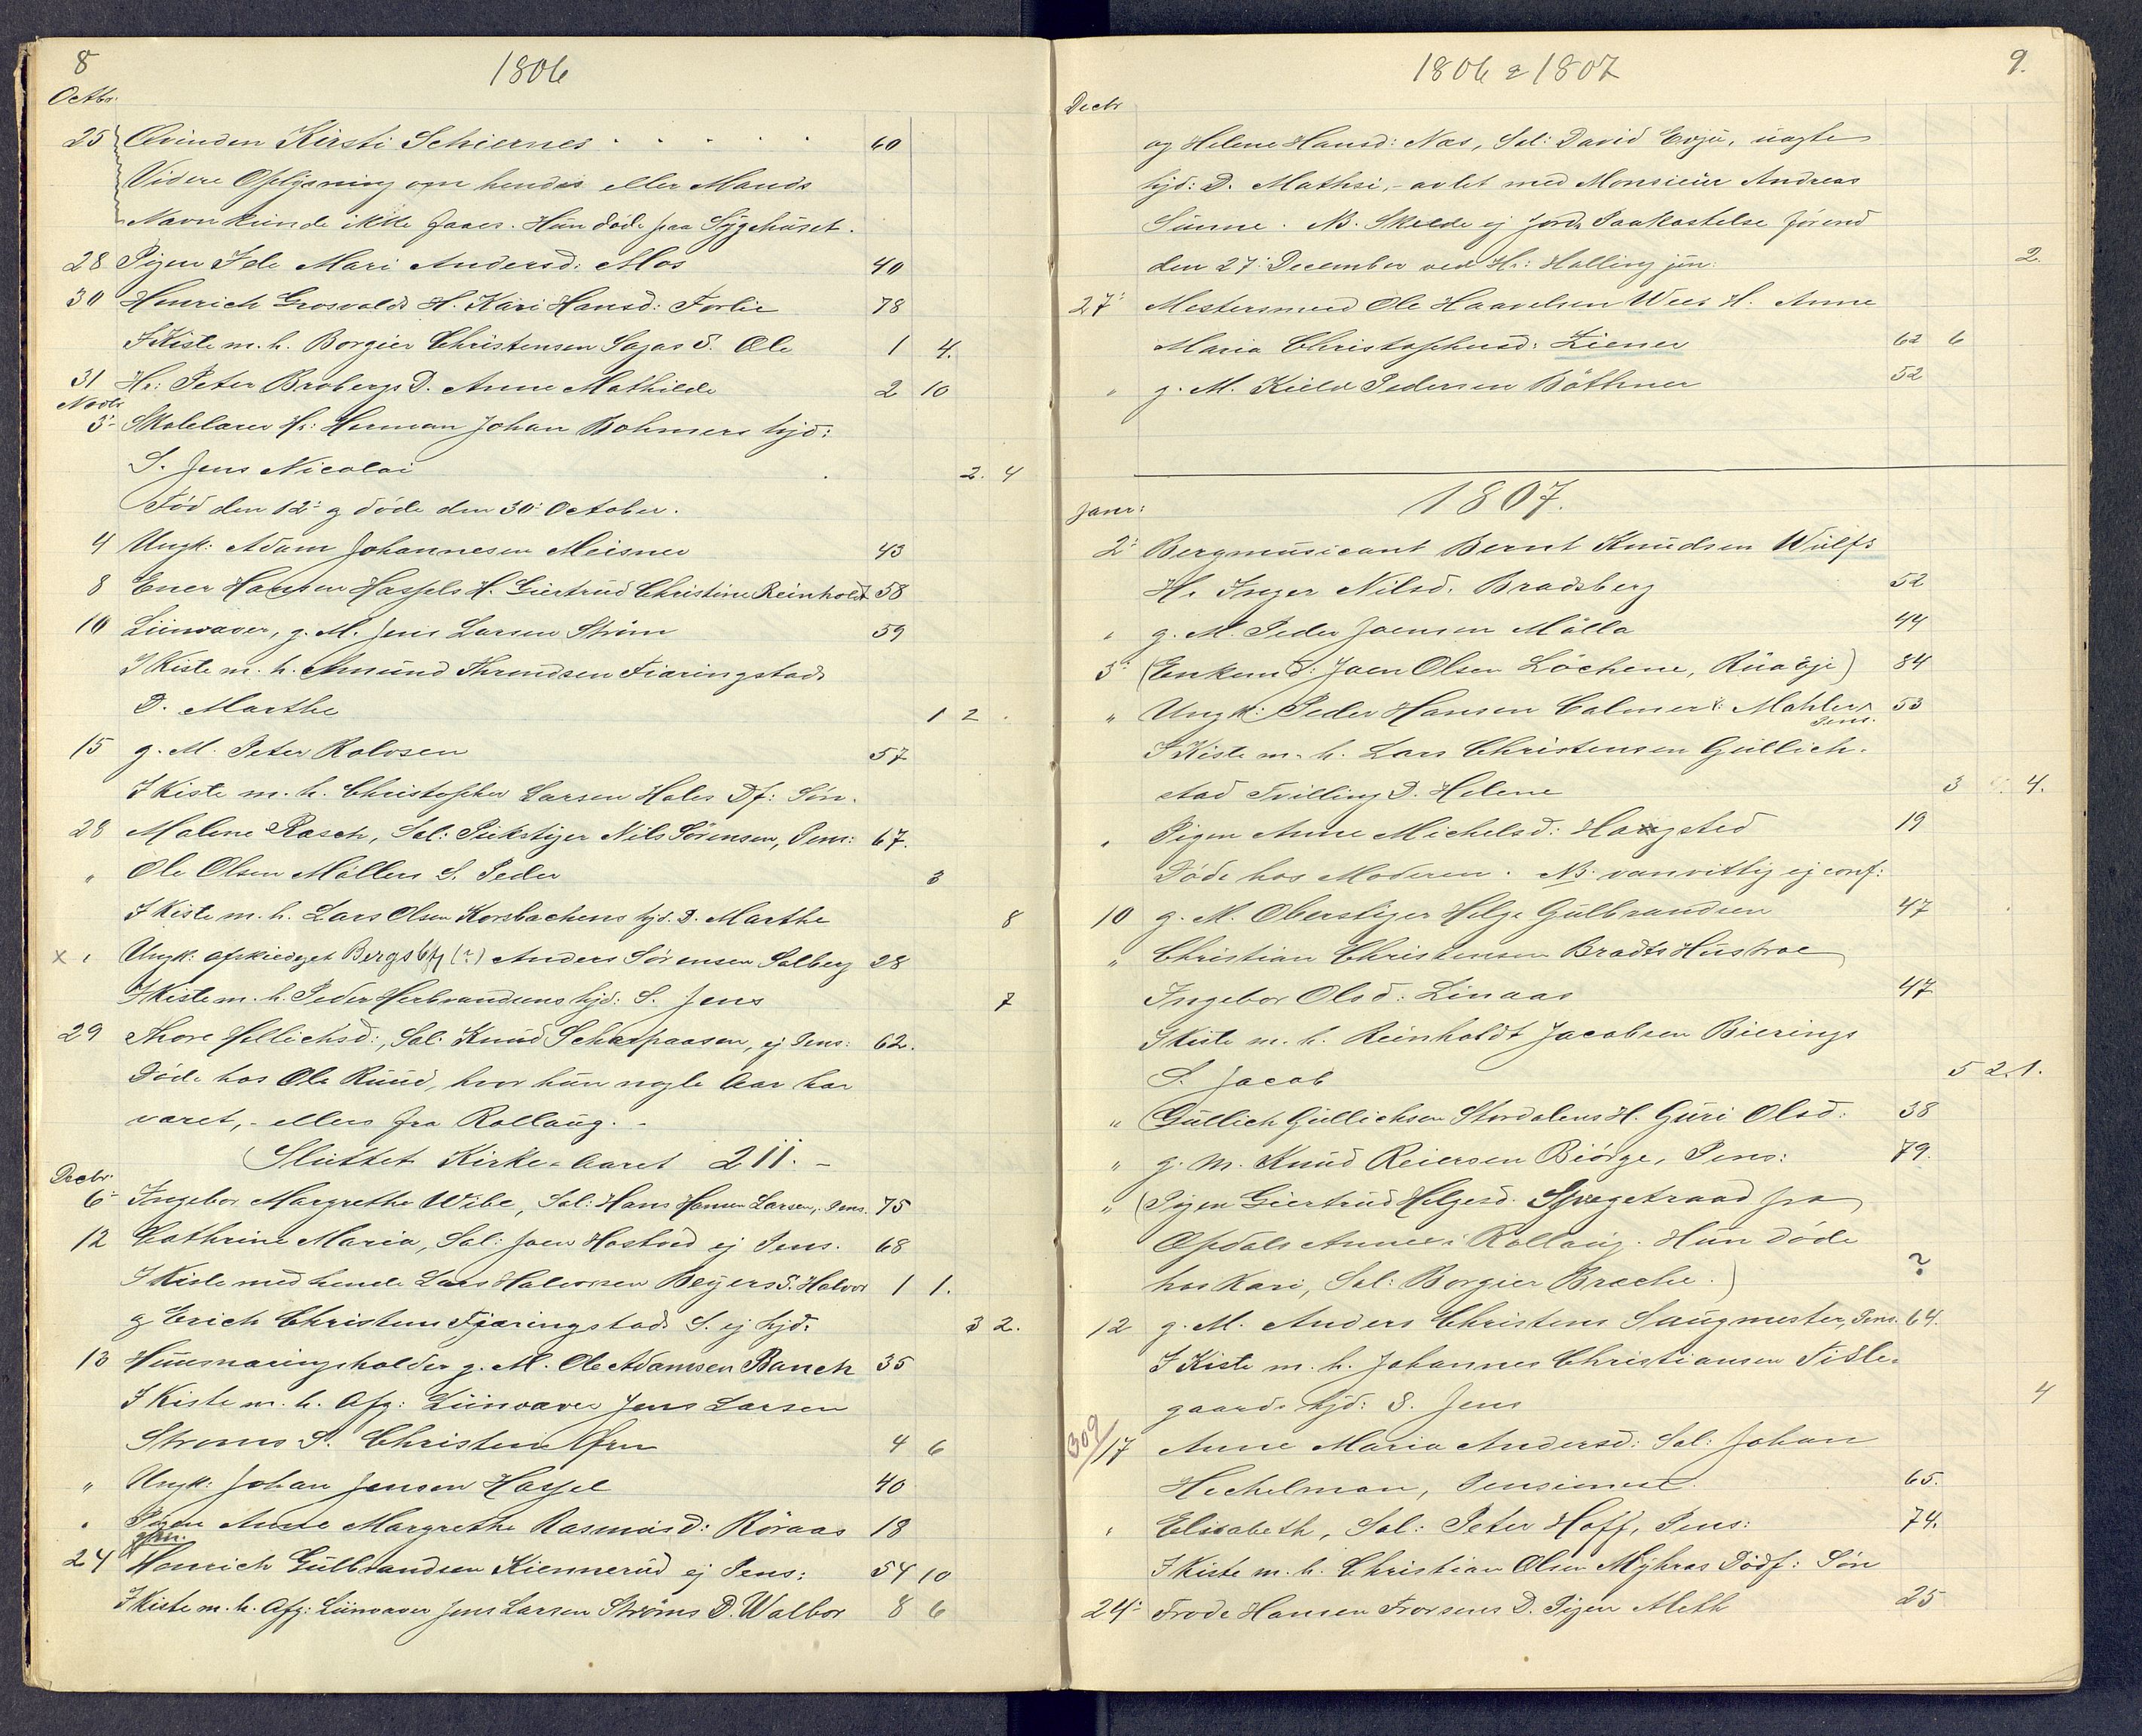 8
1806
Octbr.
25 Qvinden Kirsti Schiernes 60
Videre Oplysning om hendes eller Mands
Navn kunde ikke faaes. Hun døde paa Sygehuset.
28 Pigen Ide Mari Andersd: Mos 40
30 Henrich Grosvolds H. Kari Hansd: Forlie 78
I Kiste m. h. Borgier Christensen Sagas S. Ole 1 4.
31 Hr: Peter Brobergs D. Anne Mathilde 2 10
Novbr
3 Skolelærer Hr: Herman Johan Bohmers hjd:
S. Jens Nicolai 2. 4
Fød den 12 og døde den 30 October.
4 Ungk: Adam Johannesen Meisner 43
8 Ener Hansen Hassels H. Giertrud Christine Reinholdt 58
10 Liinvæver, g. M. Jens Larsen Strøm 59
I Kiste m. h. Amund Throndsen Fiæringstads
D. Marthe 1 2
15 g. M. Peter Rolvsen 57
I Kiste m. h. Christopher Larsen Holes Df: Søn.
28 Malene Rasch, Sal: Pukstiger Nils Sørensen, Pens: 67.
" Ole Olsen Møllers S. Peder 3
I Kiste m. h. Lars Olsen Korsbachens hjd. D. Marthe 8
x " Ungk: afskediget Bergsbfl (?) Anders Sørensen Solberg 28
I Kiste m. h. Peder Herbrandsens hjd: S. Jens 7
29 Thore Gllichsd:, Sal: Knud Scharpaasen, ej Pens: 62.
Døde hos Ole Ruud, hvor hun nogle Aar har
været, - ellers fra Rollaug. -
Sluttet Kirke-Aaret 211. -
Decbr.
6 Ingebor Margrethe Wibe, Sal: Hans Hansen Larsen, Pens. 75
12 Cathrine Maria, Sal: Joen Hostvid ej Pens. 68
I Kiste med hende Lars Halvorsen Beyers S. Halvor 1 1.
g Erich Christens Fjæringstads S. ej hjd: 3 2.
13 Huusnæringsholder g. M. Ole Adamsen Banch 35
I Kiste m. h. Afg: Liinvæver Jens Larsen
Strøms S. Christen Ørn 4 6
" Ungk: Johan Jensen Hassel 40
" Pigen Anne Margrethe Rasmusd: Røraas 18
gfm.
24 Henrich Gulbrandsen Kiennerud ej Pens: 54 10
I Kiste m. h. Afg: Liinvæver Jens Larsen Strøms D. Walbor 8 6
1806 & 1807
9.
Decbr
og Helene Hansd: Næs, Sal: David Evju, uægte
hjd: D. Mathsi, - avlet med Monsieur Andreas
Sunne. NB. Skelde ej Jords Paakastelse førend
den 27 December ved Hr: Halling jun: 2.
27 Mestersmed Ole Haavelsen Wees H. Anne
Maria Christophersd: Ziener 62 6
" g. M. Kield Pedersen Bøttner 52
1807.
Janr:
2 Bergmusicant Bernt Knudsen Wulfs
H. Inger Nilsd. Bradsberg 52
" g. M. Peder Joensen Mølla 44
5 (Enkemd: Joen Olsen Løchene, Ruaøje) 84
" Ungk: Peder Hansen Calmer Mahler Pens. 53
I Kiste m. h. Lars Christensen Gullich-
stad Tvilling D. Helene 3 4.
" Pigen Anne Michelsd: Hangsted 19
Døde hos Moderen. NB. vanvittig ej conf:
10 g. M. Oberstiger Helge Gulbrandsen 47
" Christian Christensen Bradts Hustroe
Ingebor Olsd: Linaas 47
I Kiste m. h. Reinholdt Jacobsen Bierings
S. Jacob 5 2. 1.
" Gullich Gullichsen Stordalens H. Guri Olsd: 38
" g. M. Knud Reiersen Biørge, Pens: 79.
" (Pigen Giertrud Helgesd. Spægetraad fra
Opdals Annex i Rollaug. Hun døde
hos Kari, Sal: Borgier Bræche.) ?
12 g. M. Anders Christens Saugmester, Pens. 64.
I Kiste m. h. Johannes Christiansen Tisle-
gaards hjd: S. Jens 4
309
17 Anne Maria Andersd: Sal: Johan
Hechelman, Pensionist 65.
" Elisabeth, Sal: Peter Hoff, Pens: 74.
I Kiste m. h. Christian Olsen Myhras Dødf: Søn
24 Frode Hansen Frorsens D. Pigen Aleth 25